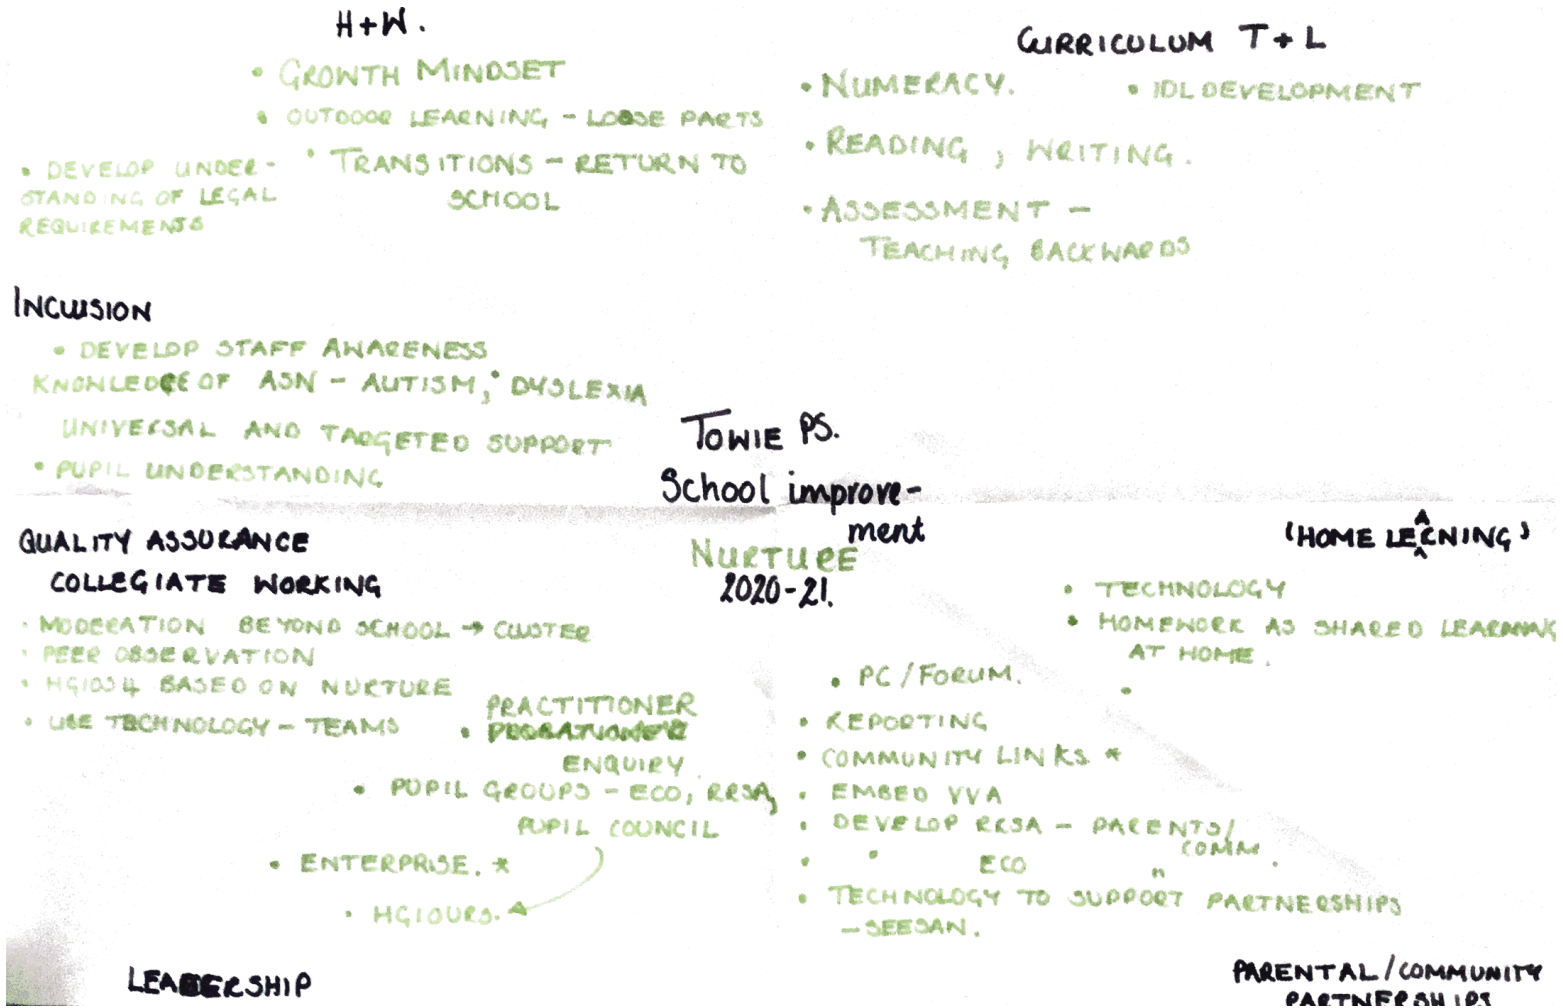 H+W.
• GROWTH MINDSET
• OUTDOOR LEARNING – LOOSE PARTS
• TRANSITIONS – RETURN TO
SCHOOL
• DEVELOP UNDER-
STANDING OF LEGAL
REQUIREMENTS
CURRICULUM T+L
• NUMERACY.
• IDL DEVELOPMENT
• READING, WRITING.
• ASSESSMENT –
TEACHING BACKWARDS
INCLUSION
• DEVELOP STAFF AWARENESS
KNOWLEDGE OF ASN – AUTISM, • DYSLEXIA
UNIVERSAL AND TARGETED SUPPORT
• PUPIL UNDERSTANDING
TOWIE PS.
School improve-
ment
NURTURE
2020-21.
QUALITY ASSURANCE
COLLEGIATE WORKING
• MODERATION BEYOND SCHOOL → CLUSTER
• PEER OBSERVATION
• HGIOS4 BASED ON NURTURE
• USE TECHNOLOGY – TEAMS
PRACTITIONER
• ENQUIRY
• PUPIL GROUPS – ECO, RRSA,
PUPIL COUNCIL
• ENTERPRISE. *
• HGIOURS.
LEADERSHIP
(HOME LEARNING)
• TECHNOLOGY
• HOMEWORK AS SHARED LEARNING
AT HOME.
• PC/FORUM.
• REPORTING
• COMMUNITY LINKS *
• EMBED VVA
• DEVELOP RRSA – PARENTS/
COMM.
• " ECO "
• TECHNOLOGY TO SUPPORT PARTNERSHIPS
– SEESAW.
PARENTAL/COMMUNITY
PARTNERSHIPS